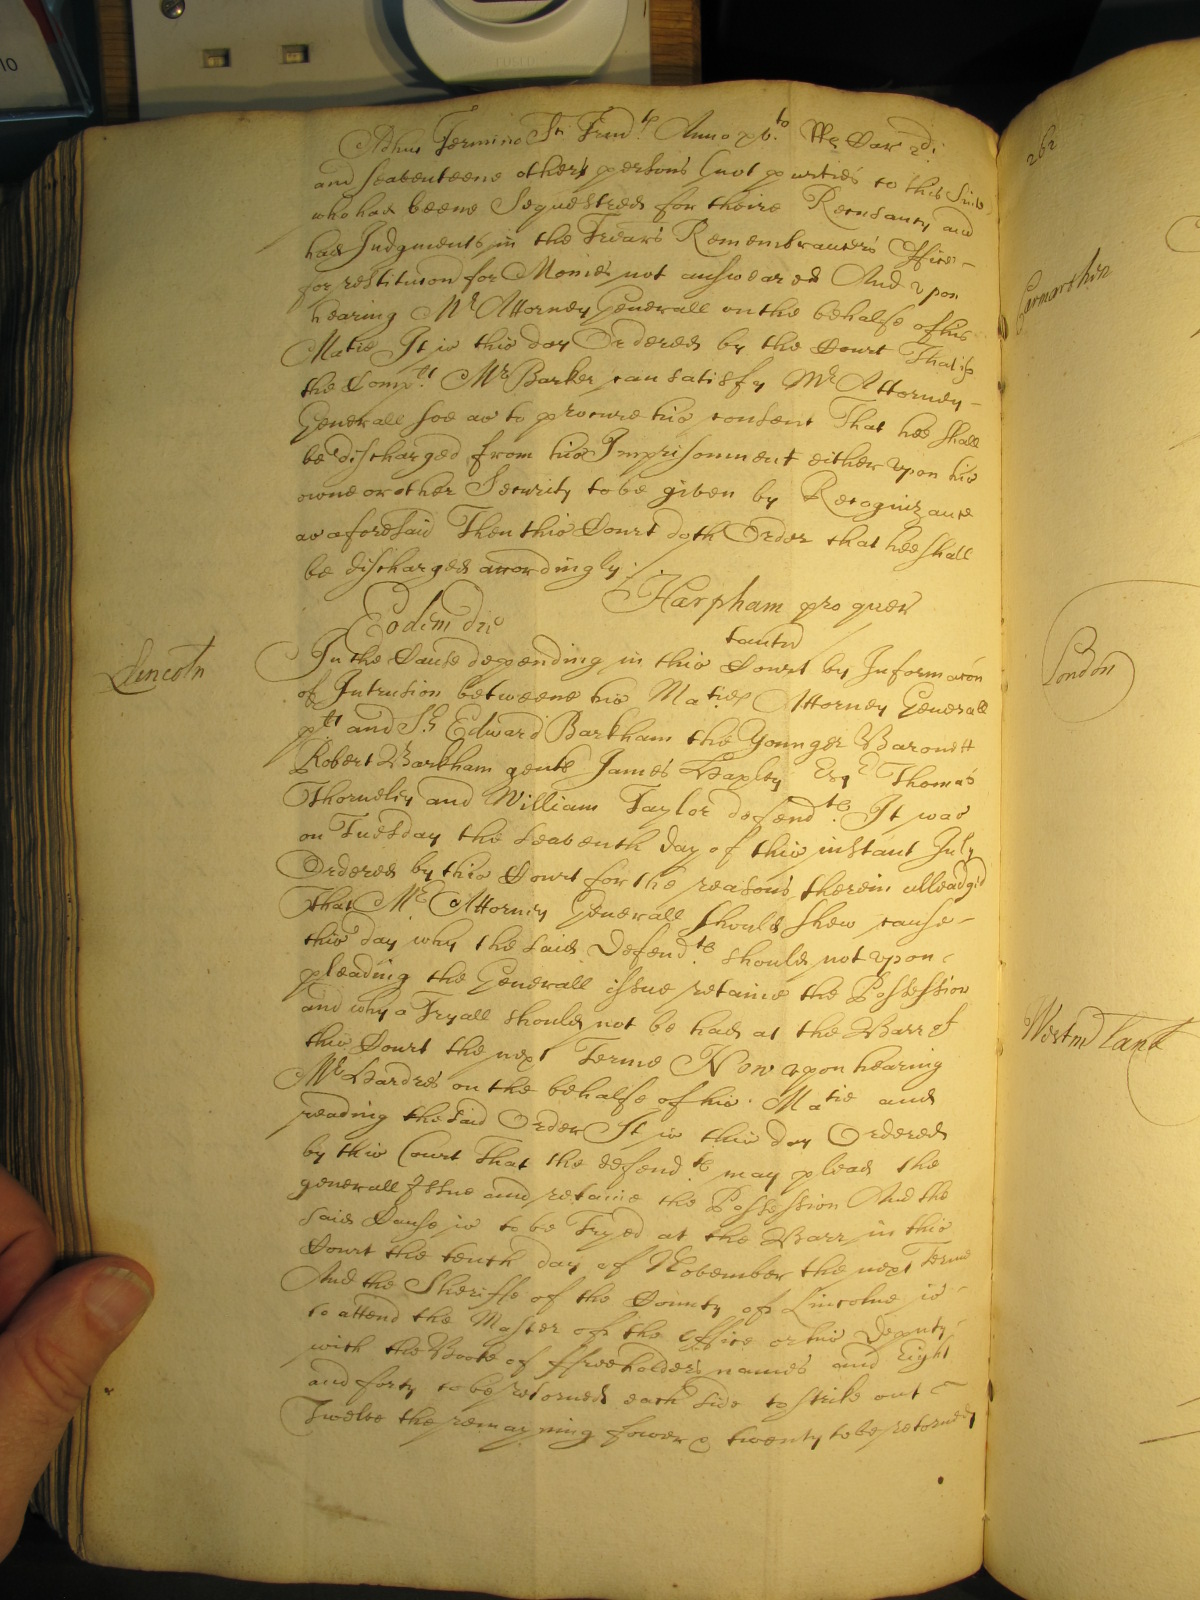 Adhuc Termino Sce Trinit Anno xvito RRs Car 2di
and seaventeene others persons (not parties to this Suite
who had beene Sequestred for theire Recusancy and
had Judgments in the Trears Remembrancers Office
for restitucion for Monies not answeared And upon
hearing Mr Attorney Generall on the behalfe of his
Matie It is this day Ordered by the Court That if
the Complt Mr Barker can satisfy Mr Attorney
Generall soe as to procure his consent That hee shall
be discharged from his Imprisonment either upon his
owne or other Security to be given by Recognizance
as aforesaid Then this Court doth Order that hee shall
be discharged accordingly
Harpham pro quer
Eodem die
tantu
Lincoln
In the Cause depending in this Court by Informacon
of Intrusion betweene his Maties Attorney Generall
plt and Sr Edward Barkham the Younger Baronett
Robert Barkham gente James Esqr Thomas
Thorneley and William Taylor defendts It was
on Tuesday the Seaventh day of this instant July
Ordered by this Court for the reasons therein alleadged
That Mr Attorney Generall should shew cause
this day why the said Defendts should not upon
pleading the Generall issue retaine the Possession
and why a Tryall should not be had at the Barr of
this Court the next Terme Now upon hearing
Mr Hardres on the behalfe of his Matie and
reading the said Order It is this day Ordered
by this Court That the defendts may plead the
generall Issue and retaine the Possession And the
said Cause is to be Tryed at the Barr in this
Court the tenth day of November the next Terme
And the Sheriffe of the County of Lincolne is
to attend the Master of the Office or his Deputy
with the Booke of ffreeholders names and Eight
and forty to be returned each side to strike out
Twelve the remayning fower & twenty to be returned
262
Carmarthin
London
Westmd